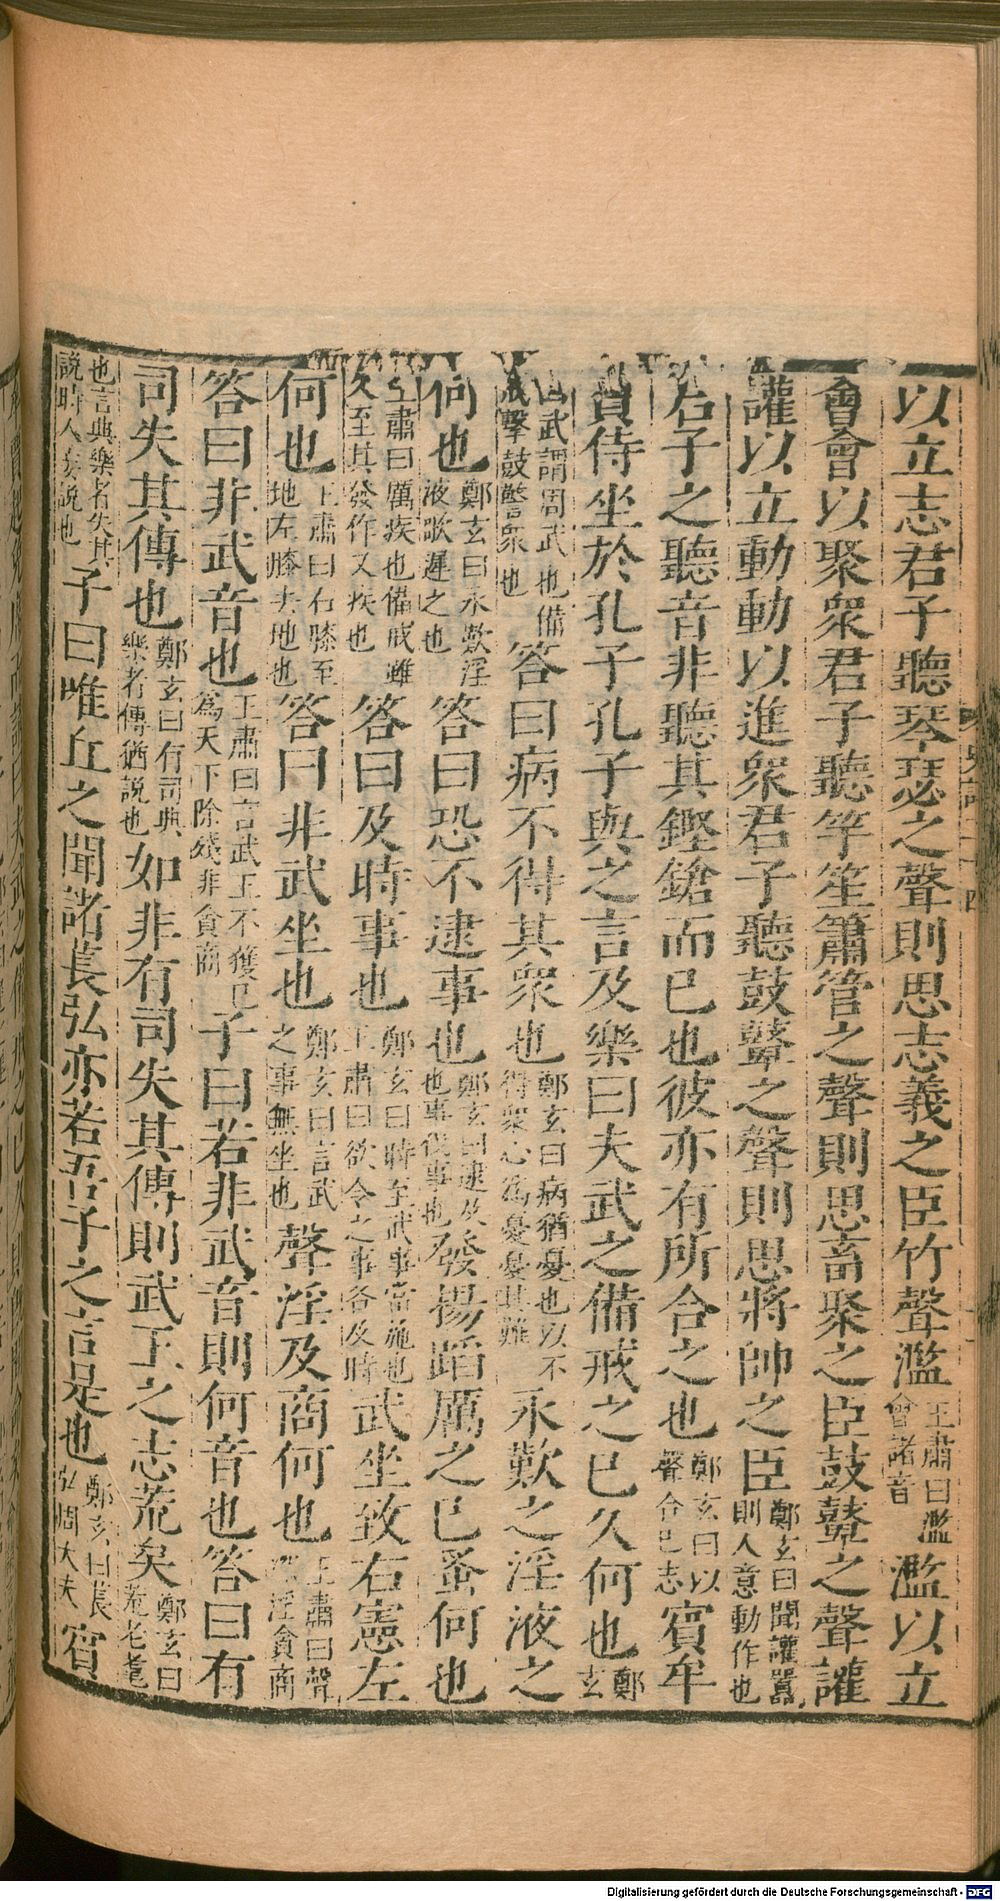 以立志君子聽琴瑟之聲則思志義之臣竹聲濫王肅曰濫會諸音濫以立
會會以聚衆君子聽竽笙簫管之聲則思畜聚之臣鼓鼙之聲讙
讙以立動動以進衆君子聽鼓鼙之聲則思將帥之臣鄭玄曰聞讙嚻則人意動作也
君子之聽音非聽其鏗鎗而已也彼亦有所合之也鄭玄曰以聲合已志賓牟
賈侍坐於孔子孔子與之言及樂曰夫武之備戒之已久何也鄭玄
曰武謂周武也備戒擊鼓警衆也答曰病不得其衆也鄭玄曰病猶憂也以不得衆心爲憂憂其難永歎之淫液之
何也鄭玄曰永歎淫液歌遲之也答曰恐不逮事也鄭玄曰逮及也事伐事也發揚蹈厲之已蚤何也
王肅曰厲疾也備戒雖久至其發作又疾也答曰及時事也鄭玄曰時至武事當施也王肅曰欲令之事各及時武坐致右憲左
何也王肅曰右膝至地左膝去地也答曰非武坐也鄭玄曰言武之事無坐也聲淫及商何也王肅曰聲淫貪商
答曰非武音也王肅曰言武王不獲已爲天下除殘非貪商子曰若非武音則何音也答曰有
司失其傳也鄭玄曰有司典樂者傳猶說也如非有司失其傳則武王之志荒矣鄭玄曰荒老耄
也言典樂者失其說時人妄說也子曰唯丘之聞諸萇弘亦若吾子之言是也鄭玄曰萇弘周大夫賓
Digitalisierung gefördert durch die Deutsche Forschungsgemeinschaft - DFG